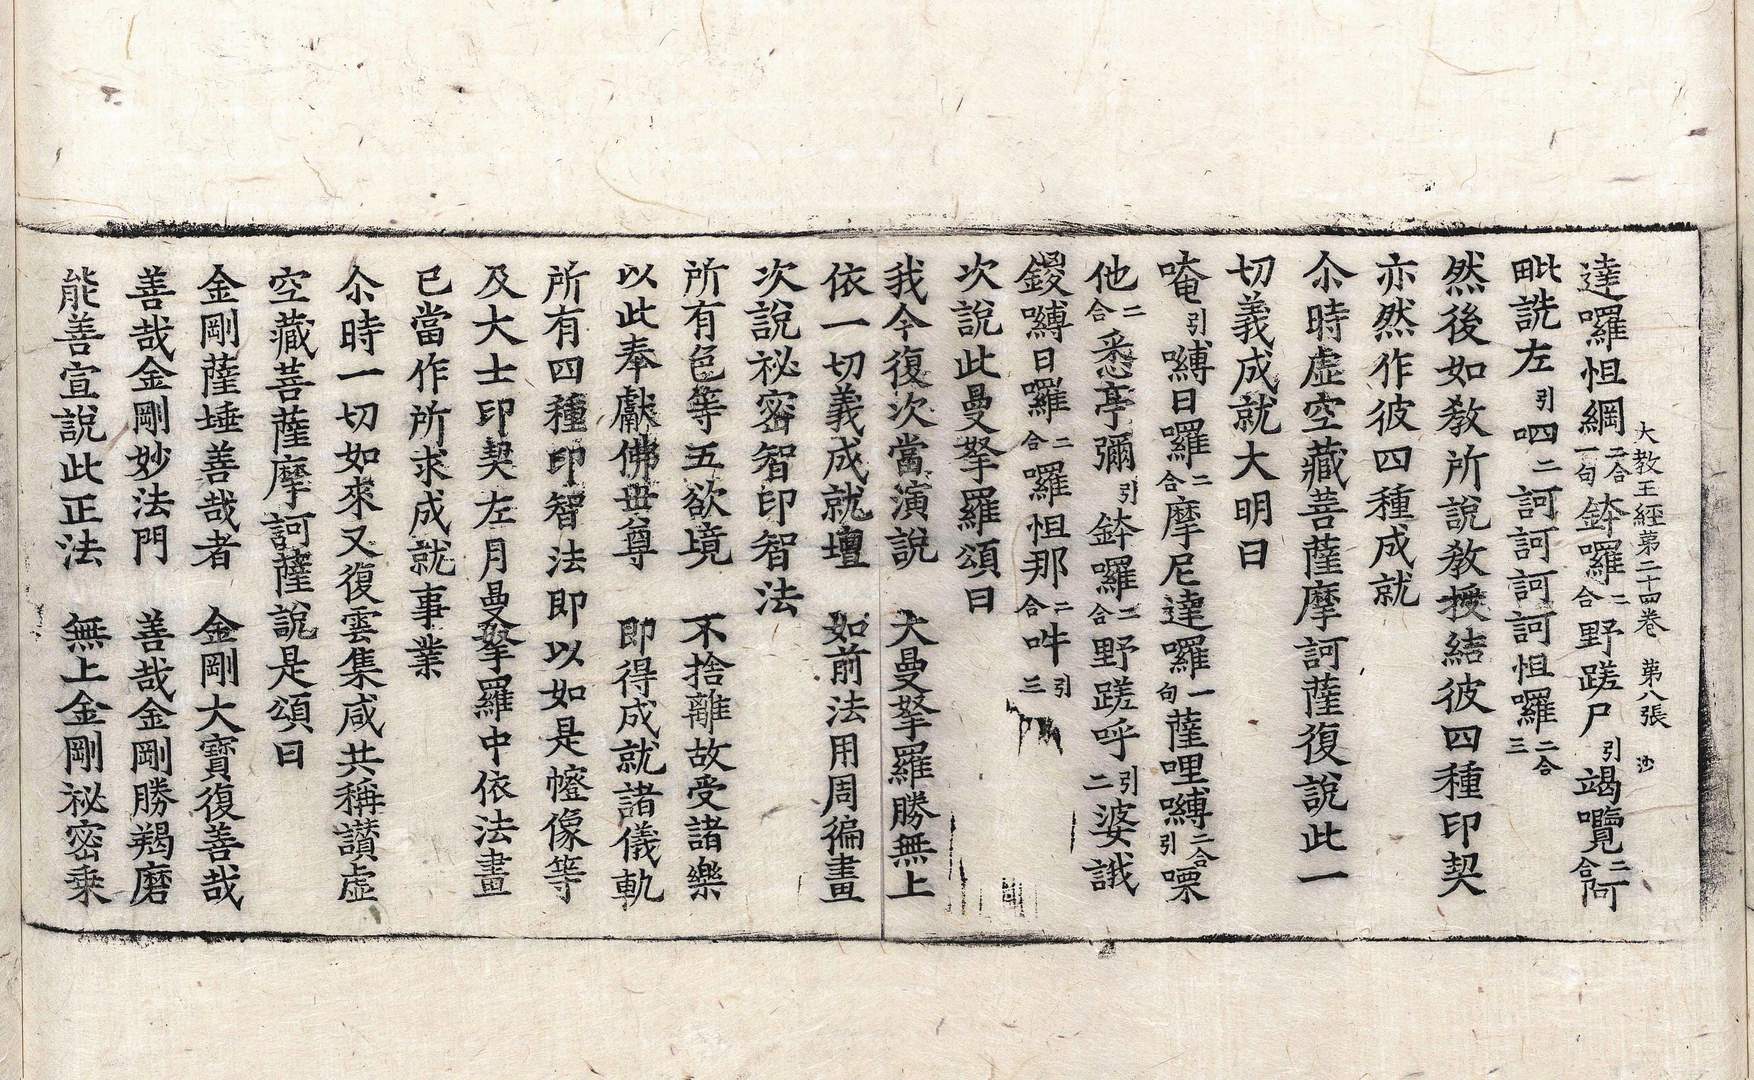 大教王經第二十四卷 第八張 沙
達囉怛綱二合一句鉢囉二合野蹉尸引竭覽二合阿
毗詵左引呬二訶訶訶訶怛囉二合三
然後如教所說教授結彼四種印契
亦然作彼四種成就
尒時虛空藏菩薩摩訶薩復說此一
切義成就大明曰
唵引嚩日囉二合摩尼達囉一句薩哩嚩二合引㗚
他二合悉亭彌引鉢囉二合野蹉呼引二婆誐
鑁嚩日囉二合囉怛那二合吽引三
次說此曼拏羅頌曰
我今復次當演說 大曼拏羅勝無上
依一切義成就壇 如前法用周徧畫
次說祕密智印智法
所有色等五欲境 不捨離故受諸樂
以此奉獻佛世尊 即得成就諸儀軌
所有四種印智法即以如是㡧像等
及大士印契左月曼拏羅中依法畫
已當作所求成就事業
尒時一切如來又復雲集咸共稱讃虛
空藏菩薩摩訶薩說是頌曰
金剛薩埵善哉者 金剛大寶復善哉
善哉金剛妙法門 善哉金剛勝羯磨
能善宣說此正法 無上金剛祕密乗